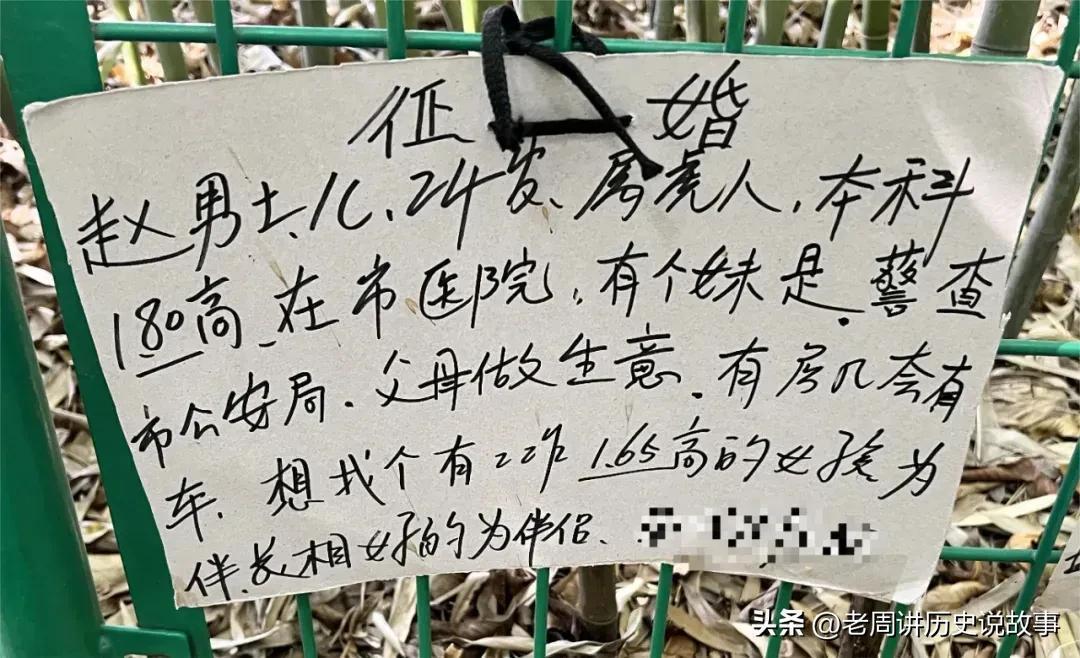 征 婚
赵男士、儿、24岁、属虎人，本科
180高、在市医院，有个妹是、警查
市公安局、父母做生意、有房几套有
车、想找个有工作1.65高的女孩为
伴、长相好的为伴侣、
头条 @老周讲历史说故事